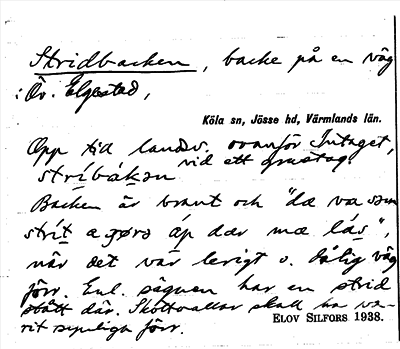 Stridbacken, backe på en väg
i Öv. Elgestad,
Köla sn, Jösse hd, Värmlands län.
Opp tid landsv. ovanför Intaget,
vid ett grustag.
stríbákən
Backen är brant och "dæ va som
strít a gøra áp dær mæ lás",
när det var lerigt o. dålig väg
förr. Enl. sägnen har en strid
stått där. Skottvallar skall ha va-
rit synliga förr.
ELOV SILFORS 1938.